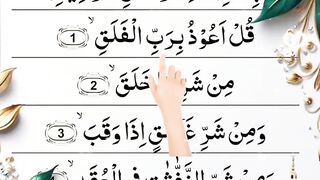 قُلْ اَعُوْذُ بِرَبِّ الْفَلَقِ ۙ 1
مِنْ شَرِّ خَلَقَ ۙ 2
وَمِنْ شَرِّ اِذَا وَقَبَ ۙ 3
شَرِّ النَّفّٰثٰتِ فِی الْعُقَدِ